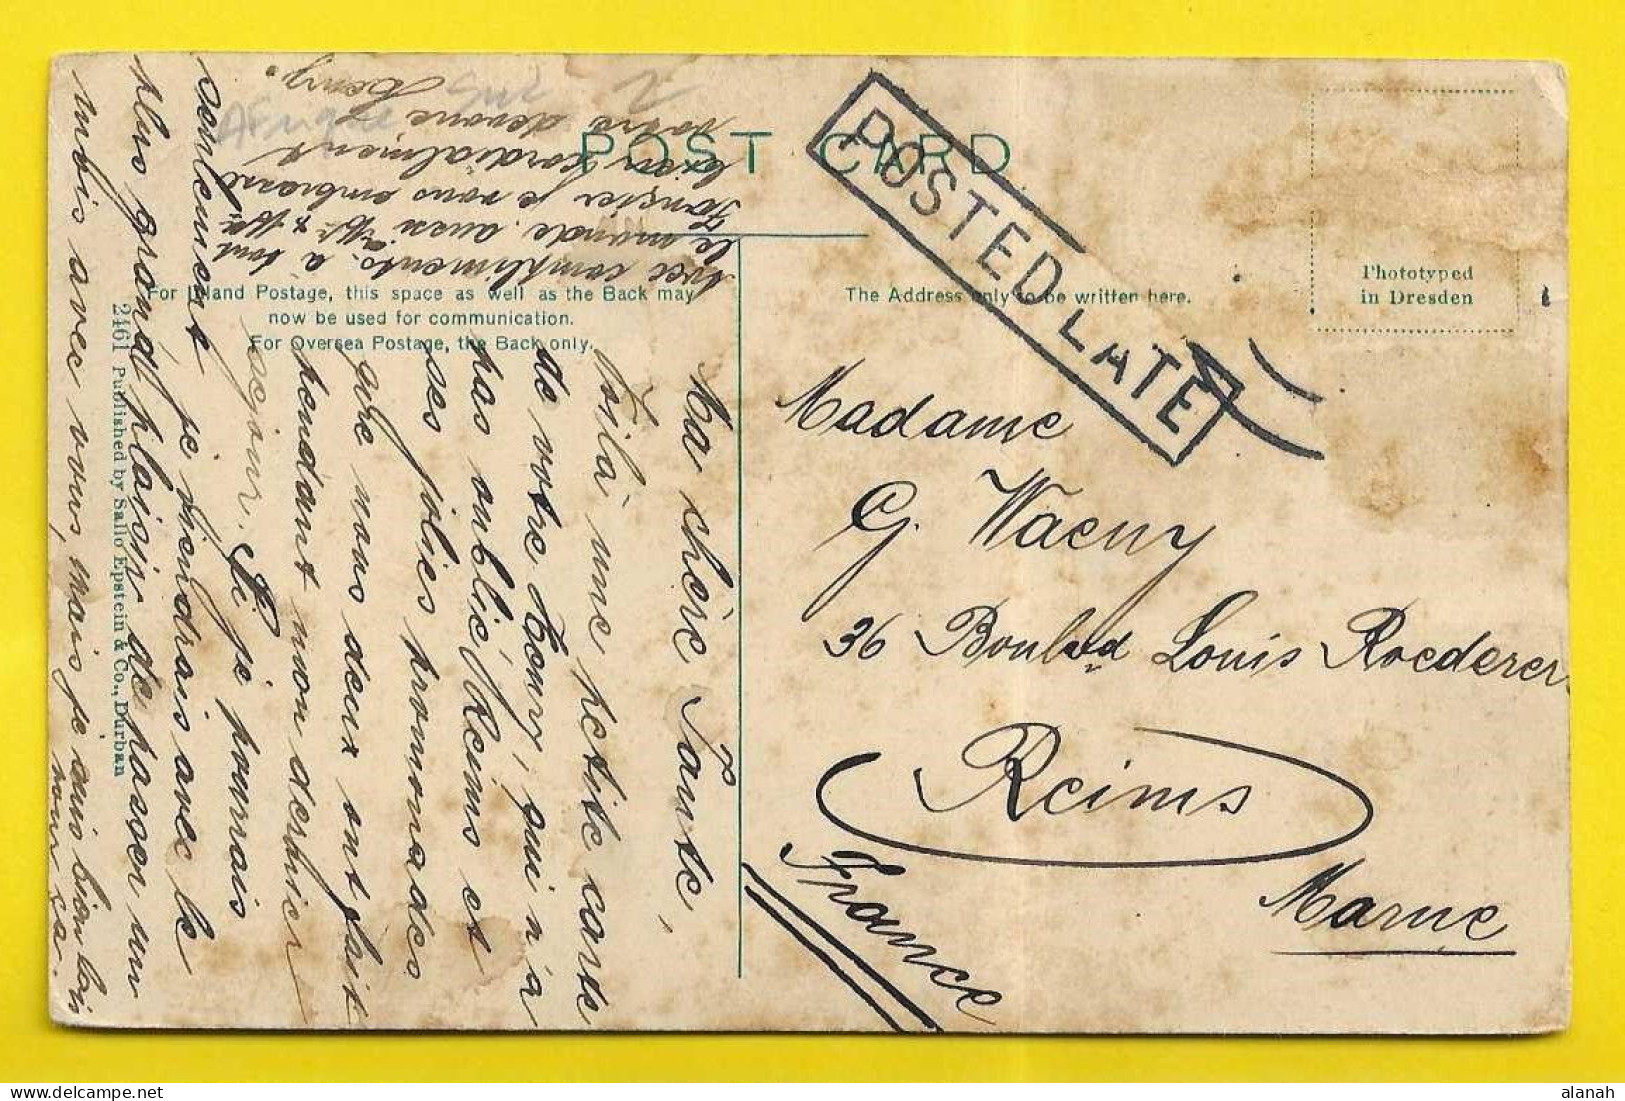 POST CARD.
POSTED LATE
Afrique Sud
Phototyped
in Dresden
For Inland Postage, this space as well as the Back may
now be used for communication.
For Oversea Postage, the Back only.
The Address only to be written here.
2461 Published by Sallo Epstein & Co., Durban
Ma chère Tante,
Voilà une petite carte
de votre Remy, qui n'a
pas oublié Reims et
ses jolies promenades
que nous deux ont fait
pendant mon dernier
sejour. Si je pourrais
seulement je viendrais avec le
plus grand plaisir de passer un
mois avec vous, mais je suis bien loin
pour ça.
Avec compliments à tout
le monde aussi à Mr & Mme
je vous embrasse
bien cordialement
votre devoué
Remy.
Madame
G. Waeny
36 Boulvd Louis Roederer
Reims
Marne
France
alanah